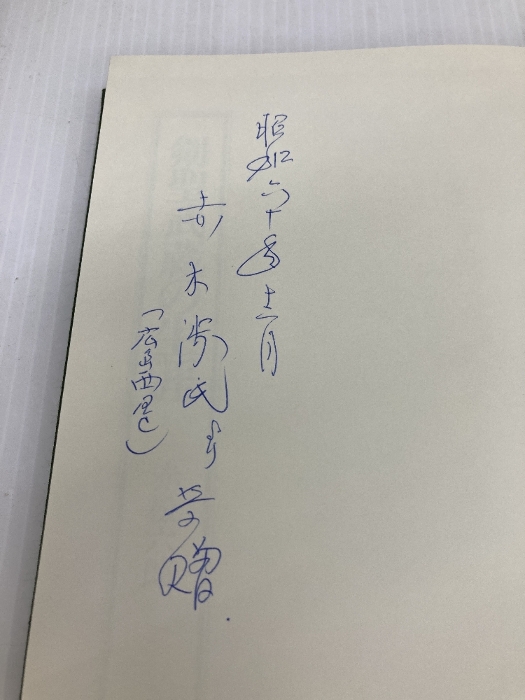 昭和六十年十二月
赤木 氏より 贈
(広島西